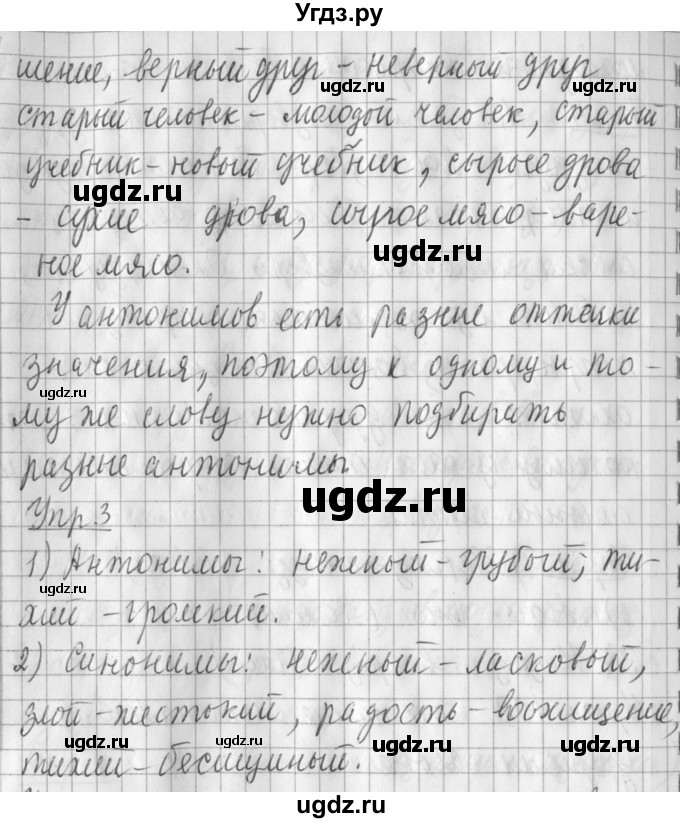 Угдз.ру
шение, верный друг - неверный друг
старый человек - молодой человек, старый
учебник - новый учебник, сырые дрова
ugdz.ru
- сухие дрова, сырое мясо - варе-
ugdz.ru
ное мясо.
У антонимов есть разные оттенки
значения, поэтому к одному и то-
ugdz.ru
му же слову нужно подбирать
разные антонимы
ugdz.ru
Упр.3
ugdz.ru
1) Антонимы: нежный - грубый; ти-
ugdz.ru
хий - громкий.
2) Синонимы: нежный - ласковый,
злой - жестокий, радость - восхищение,
ugdz.ru
ugdz.ru
тихий - бесшумный.
ugdz.ru